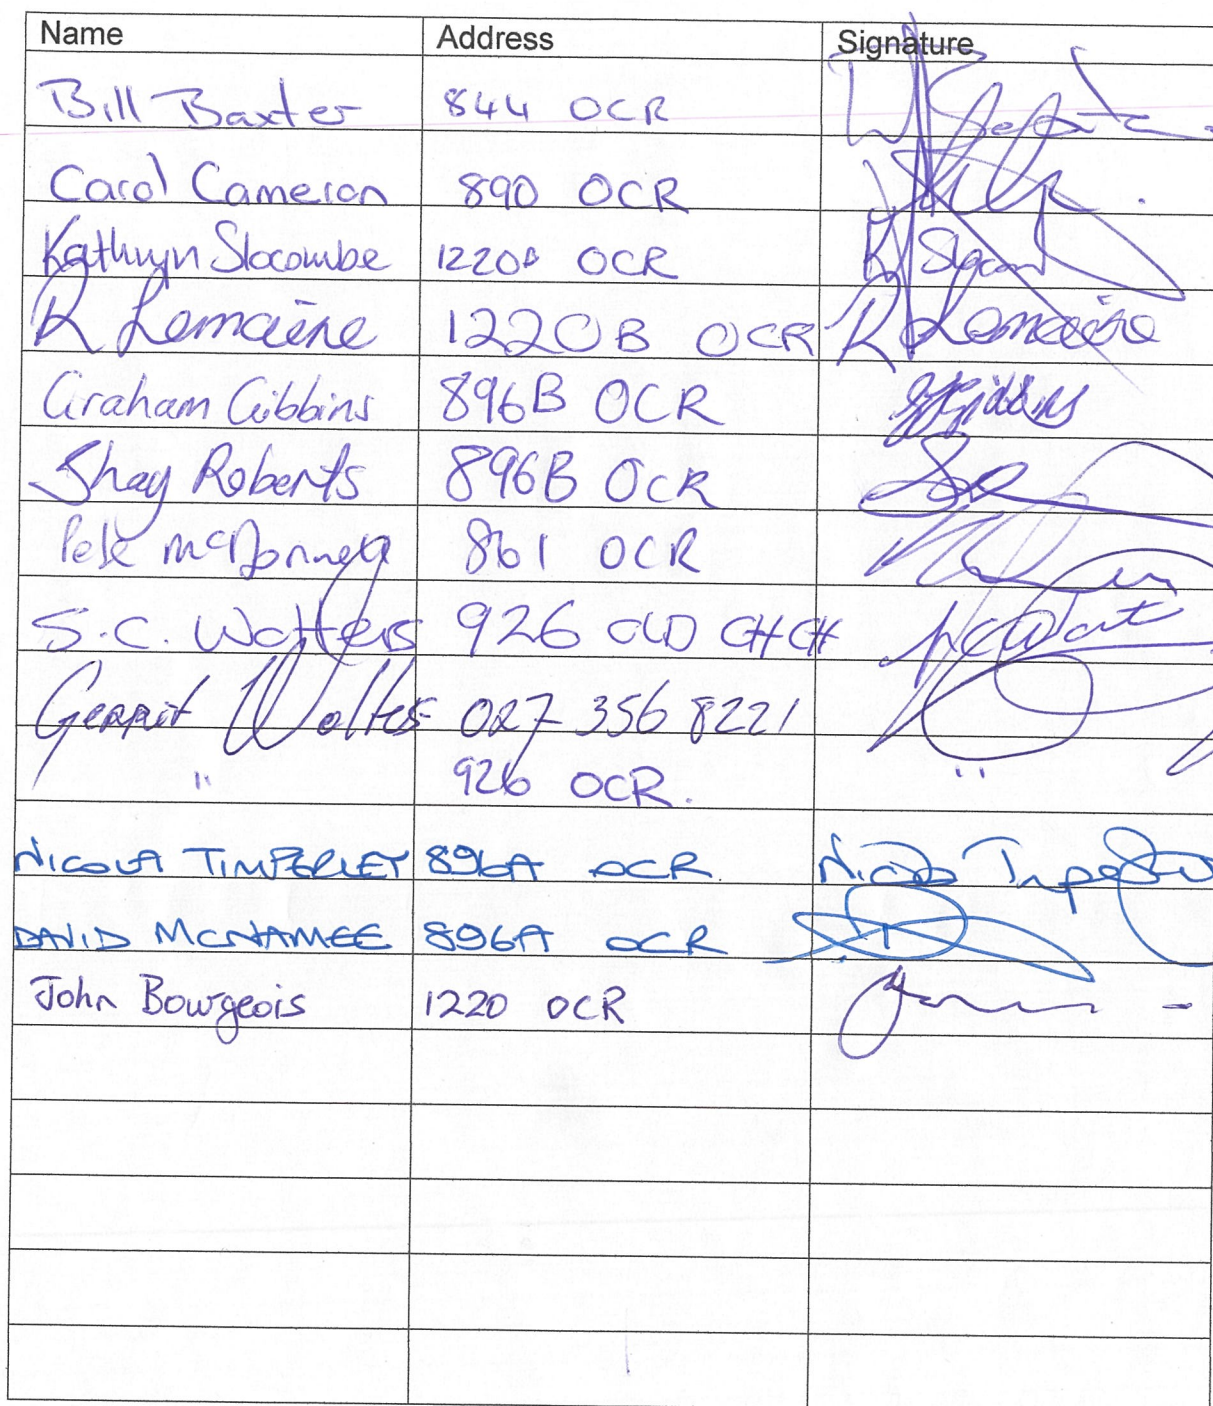 Name Address Signature
Bill Baxter 844 OCR
Carol Cameron 890 OCR
Kathryn Slocombe 1220A OCR K Slocom
R Lemaire 1220B OCR R Lemaire
Graham Gibbins 896B OCR
Shay Roberts 896B OCR
Pete McDonnell 861 OCR
S.C. Watters 926 OLD CHCH
Gerrit Wolters 027 356 8221
" 926 OCR. "
NICOLA TIMPERLEY 896A OCR Nicola Timperley
DAVID MCNAMEE 896A OCR
John Bourgeois 1220 OCR